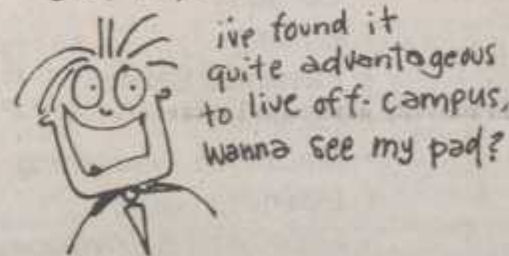 ive found it
quite advantageous
to live off-campus,
wanna see my pad?